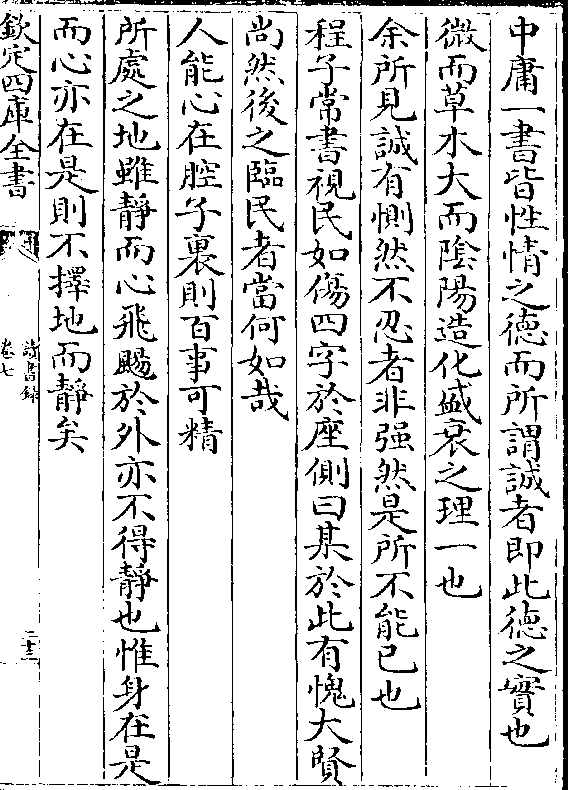 中庸一書皆性情之徳而所謂誠者即此徳之實也
微而草水大而陰陽造化盛衰之理一也
余所見誠有惻然不忍者非强然是所不能已也
程子常書視民如傷四字於座側曰某於此有愧大賢
尚然後之臨民者當何如哉
人能心在腔子裏則百事可精
所處之地雖静而心飛颺於外亦不得静也惟身在是
而心亦在是則不擇地而静矣
欽定四庫全書
讀書録
卷七
二十三